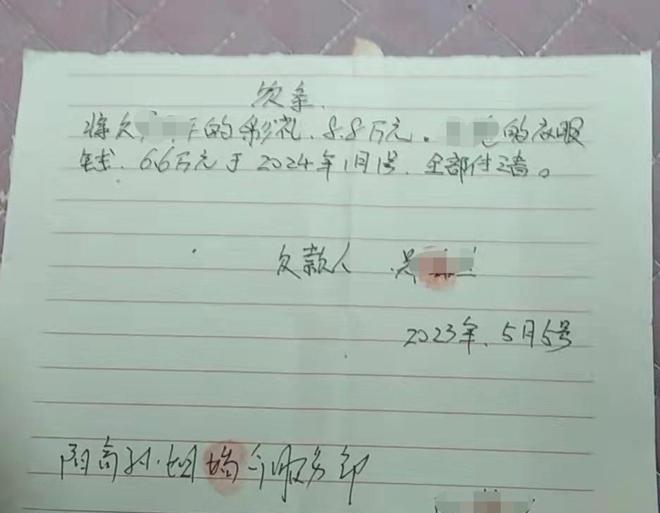 欠条.
将欠的彩礼.8.8万元.的衣服
钱.6.6万元于2024年1月1号.全部付清。
欠款人 吴
2023年.5月5号
婚介服务部